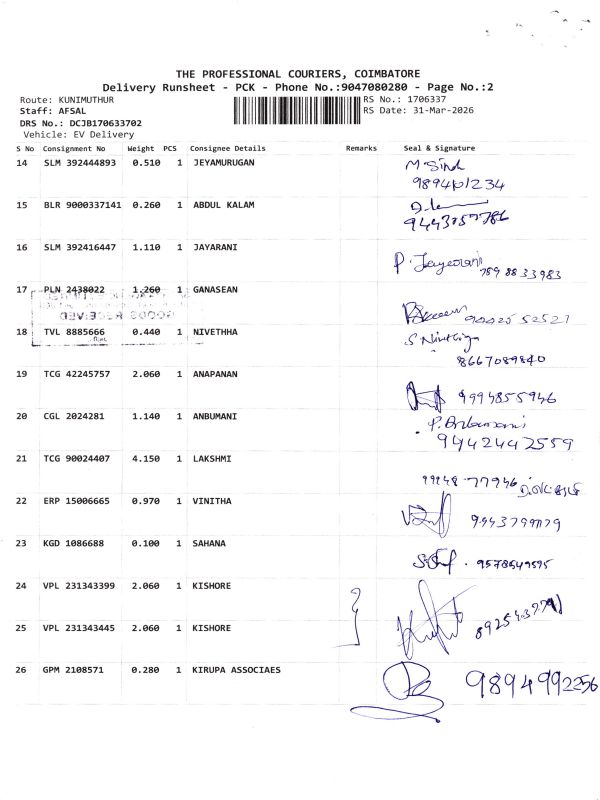 THE PROFESSIONAL COURIERS, COIMBATORE
Delivery Runsheet - PCK - Phone No.:9047080280 - Page No.:2
Route: KUNIMUTHUR
RS No.: 1706337
Staff: AFSAL
RS Date: 31-Mar-2026
DRS No.: DCJB170633702
Vehicle: EV Delivery
S No Consignment No Weight PCS Consignee Details Remarks Seal & Signature
14 SLM 392444893 0.510 1 JEYAMURUGAN
15 BLR 9000337141 0.260 1 ABDUL KALAM
16 SLM 392416447 1.110 1 JAYARANI P. Jayarani
7898833983
17 PLN 2438022 1.260 1 GANASEAN
GOODS RECEIVED
18 TVL 8885666 0.440 1 NIVETHHA
8667089840
19 TCG 42245757 2.060 1 ANAPANAN
9994855946
20 CGL 2024281 1.140 1 ANBUMANI P. Anbumani
9442442559
21 TCG 90024407 4.150 1 LAKSHMI
22 ERP 15006665 0.970 1 VINITHA
23 KGD 1086688 0.100 1 SAHANA
9578549595
24 VPL 231343399 2.060 1 KISHORE
25 VPL 231343445 2.060 1 KISHORE
26 GPM 2108571 0.280 1 KIRUPA ASSOCIAES 9894992256